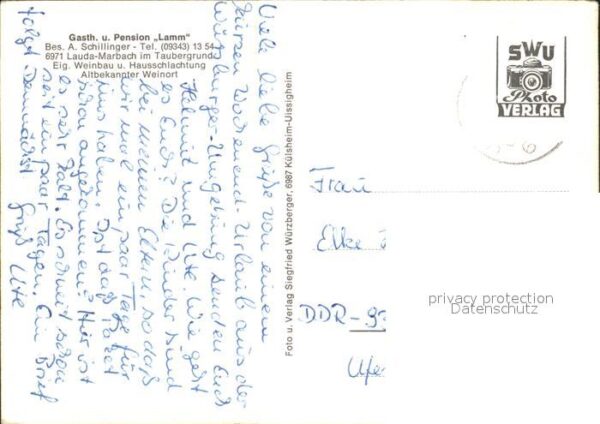 Gasth. u. Pension „Lamm"
Bes. A. Schillinger - Tel. (09343) 13 54
6971 Lauda-Marbach im Taubergrund
Eig. Weinbau u. Hausschlachtung
Altbekannter Weinort
Viele liebe Grüße von einem
kurzen Wochenend-Urlaub aus der
Würzburger-Umgebung senden Euch
Helmut und Ute. Wie geht
es Euch? Die Kinder sind
bei meinen Eltern, so daß
wir mal ein paar Tage für
uns haben. Ist das Paket
schon angekommen? Hier ist
es sehr kalt. Es schneit schon
seit ein paar Tagen. Ein Brief
folgt demnächst. Gruß Ute
Foto u. Verlag Siegfried Würzberger, 6987 Külsheim-Uissigheim
SWU
Photo
VERLAG
Frau
Elke
DDR-9
privacy protection
Datenschutz